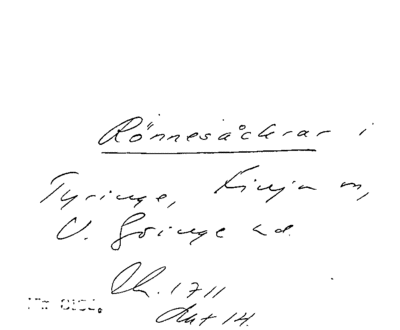 Rönnesåckrar i
Tyringe, Finja m,
V. Göinge hd.
Lk. 1711
Akt 14.